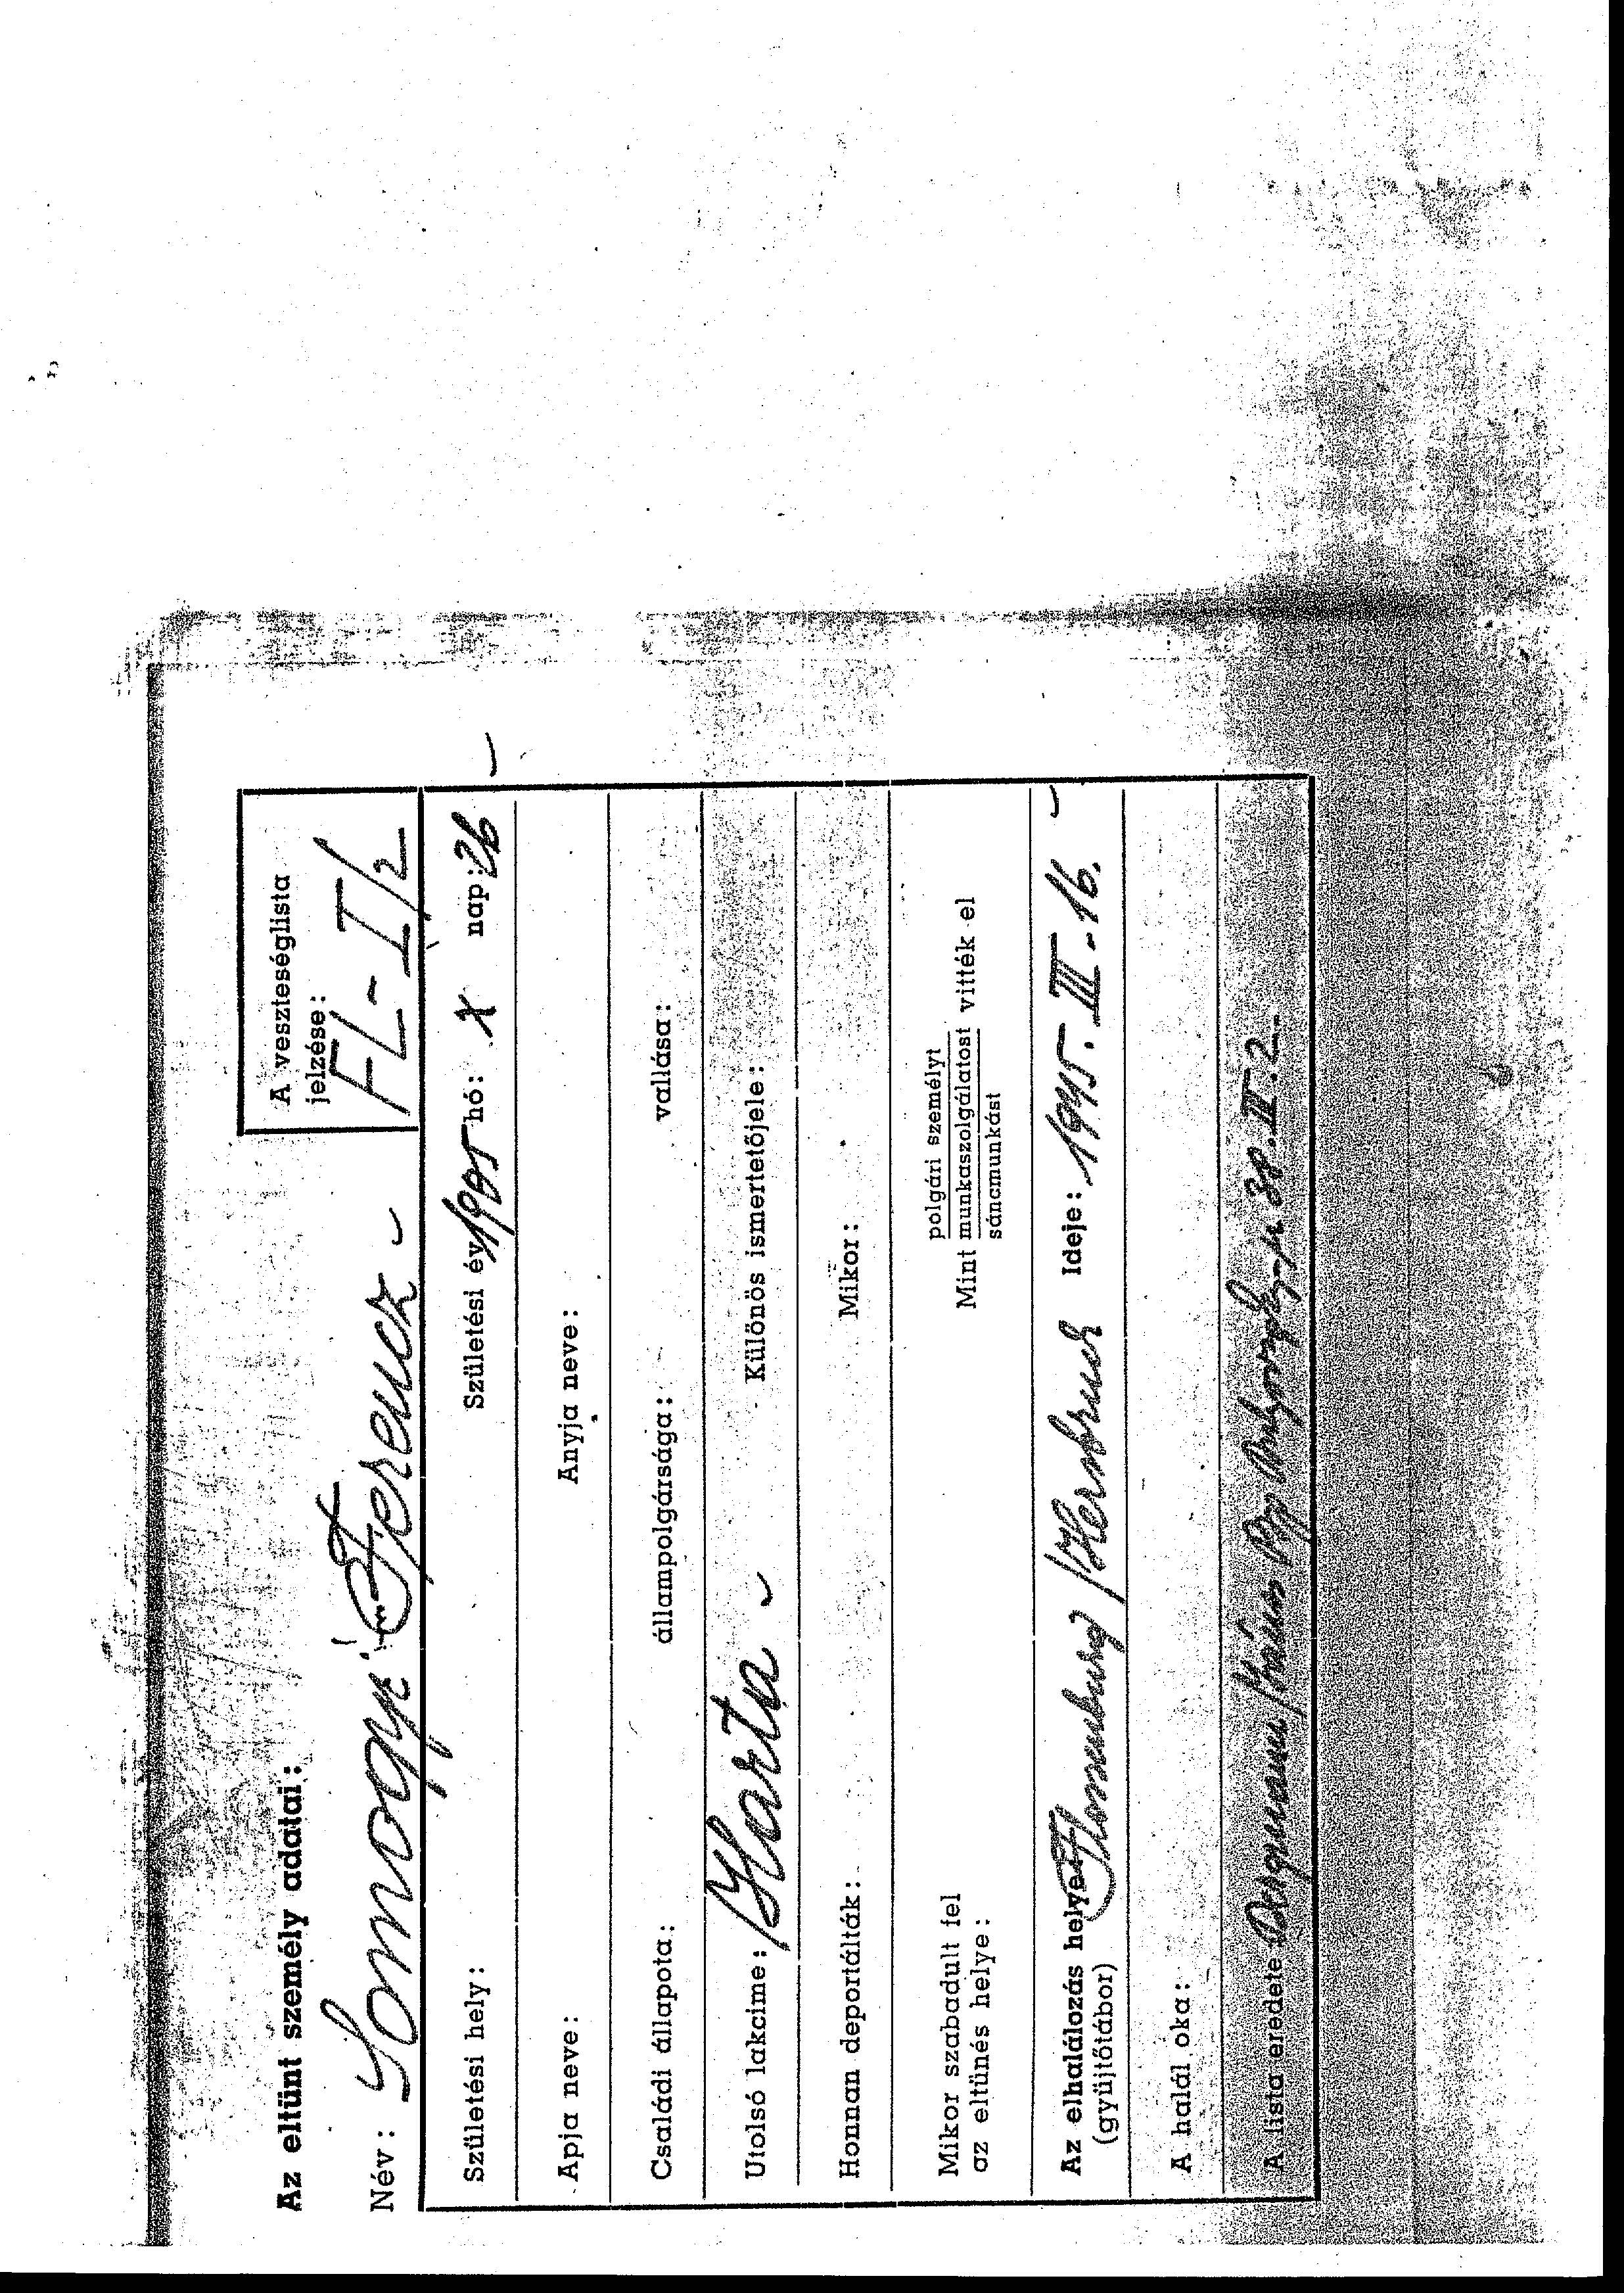 Az eltünt személy adatai:
A veszteséglista
jelzése:
FL-I/2
Név: Somogyi Ferencz
Születési hely: Születési év: 1905 hó: X nap: 26
Apja neve: Anyja neve:
Családi állapota: állampolgársága: vallása:
Utolsó lakcime: Harta Különös ismertetőjele:
Honnan deportálták: Mikor:
Mikor szabadult fel
az eltünés helye:
polgári személyt
Mint munkaszolgálatost vitték el
sáncmunkást
Az elhalálozás helye: Flossenburg/Hersbruck Ideje: 1945. III. 16.
(gyüjtőtábor)
A halál oka:
A lista eredete